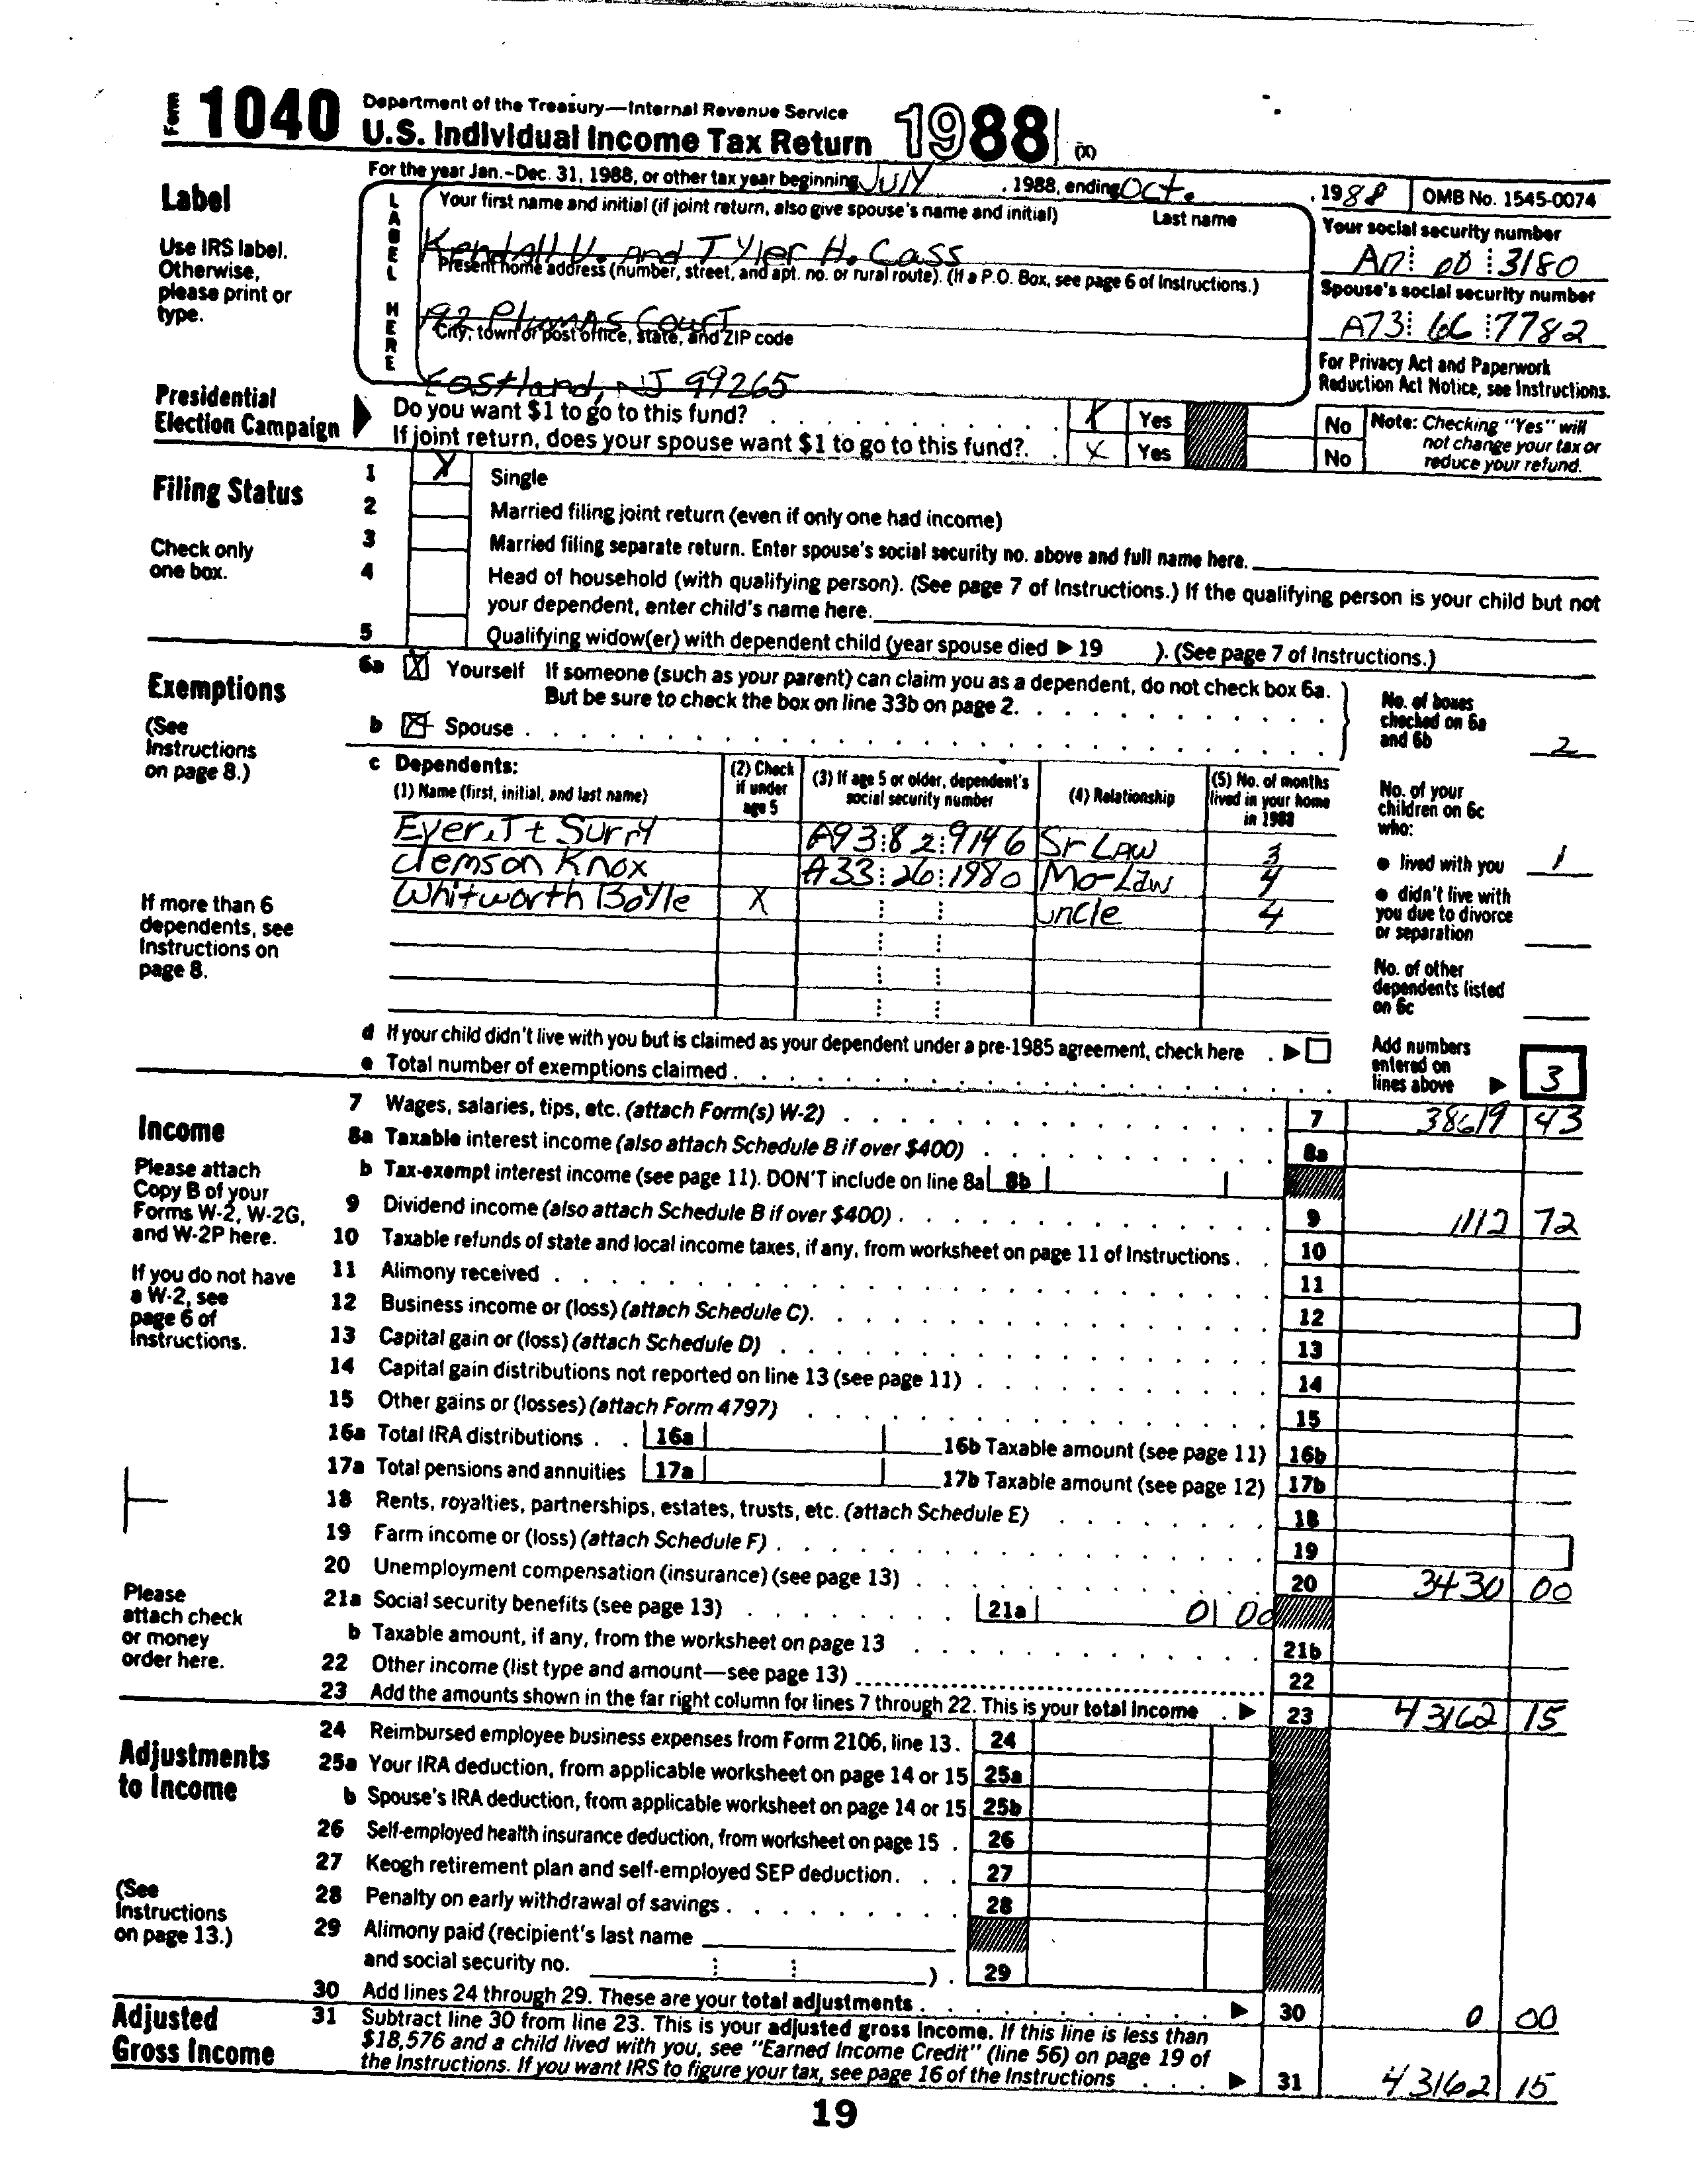 Form 1040 Department of the Treasury—Internal Revenue Service
U.S. Individual Income Tax Return 1988 (X)
For the year Jan.-Dec. 31, 1988, or other tax year beginning July , 1988, ending Oct. , 1988 OMB No. 1545-0074
Label
Use IRS label. Otherwise, please print or type.
LABEL HERE
Your first name and initial (if joint return, also give spouse's name and initial) Last name
Kendall U. and Tyler H. Cass
Your social security number
00 3180
Present home address (number, street, and apt. no. or rural route). (If a P.O. Box, see page 6 of Instructions.)
92 Plumas Court
Spouse's social security number
A73 66 7782
City, town or post office, state, and ZIP code
Eastland, NJ 99265
For Privacy Act and Paperwork Reduction Act Notice, see Instructions.
Presidential Election Campaign
Do you want $1 to go to this fund? X Yes No
If joint return, does your spouse want $1 to go to this fund? X Yes No
Note: Checking "Yes" will not change your tax or reduce your refund.
Filing Status
Check only one box.
1 X Single
2 Married filing joint return (even if only one had income)
3 Married filing separate return. Enter spouse's social security no. above and full name here.
4 Head of household (with qualifying person). (See page 7 of Instructions.) If the qualifying person is your child but not
your dependent, enter child's name here.
5 Qualifying widow(er) with dependent child (year spouse died ▶ 19 ). (See page 7 of Instructions.)
Exemptions
(See Instructions on page 8.)
6a X Yourself If someone (such as your parent) can claim you as a dependent, do not check box 6a.
But be sure to check the box on line 33b on page 2.
b X Spouse
No. of boxes checked on 6a and 6b 2
c Dependents:
(1) Name (first, initial, and last name) (2) Check if under age 5 (3) If age 5 or older, dependent's social security number (4) Relationship (5) No. of months lived in your home in 1988
Everitt Surry A93 82 9146 Sr Law 3
Clemson Knox A33 26 1980 Mo-Law 4
Whitworth Boyle X uncle 4
If more than 6 dependents, see Instructions on page 8.
No. of your children on 6c who:
● lived with you 1
● didn't live with you due to divorce or separation
No. of other dependents listed on 6c
d If your child didn't live with you but is claimed as your dependent under a pre-1985 agreement, check here ▶
e Total number of exemptions claimed
Add numbers entered on lines above ▶ 3
Income
Please attach Copy B of your Forms W-2, W-2G, and W-2P here.
If you do not have a W-2, see page 6 of Instructions.
Please attach check or money order here.
7 Wages, salaries, tips, etc. (attach Form(s) W-2) 7 38619 43
8a Taxable interest income (also attach Schedule B if over $400) 8a
b Tax-exempt interest income (see page 11). DON'T include on line 8a 8b
9 Dividend income (also attach Schedule B if over $400) 9 1112 72
10 Taxable refunds of state and local income taxes, if any, from worksheet on page 11 of Instructions 10
11 Alimony received 11
12 Business income or (loss) (attach Schedule C) 12
13 Capital gain or (loss) (attach Schedule D) 13
14 Capital gain distributions not reported on line 13 (see page 11) 14
15 Other gains or (losses) (attach Form 4797) 15
16a Total IRA distributions 16a 16b Taxable amount (see page 11) 16b
17a Total pensions and annuities 17a 17b Taxable amount (see page 12) 17b
18 Rents, royalties, partnerships, estates, trusts, etc. (attach Schedule E) 18
19 Farm income or (loss) (attach Schedule F) 19
20 Unemployment compensation (insurance) (see page 13) 20 3430 00
21a Social security benefits (see page 13) 21a 0 00
b Taxable amount, if any, from the worksheet on page 13 21b
22 Other income (list type and amount—see page 13) 22
23 Add the amounts shown in the far right column for lines 7 through 22. This is your total income ▶ 23 43162 15
Adjustments to Income
(See Instructions on page 13.)
24 Reimbursed employee business expenses from Form 2106, line 13. 24
25a Your IRA deduction, from applicable worksheet on page 14 or 15 25a
b Spouse's IRA deduction, from applicable worksheet on page 14 or 15 25b
26 Self-employed health insurance deduction, from worksheet on page 15 26
27 Keogh retirement plan and self-employed SEP deduction 27
28 Penalty on early withdrawal of savings 28
29 Alimony paid (recipient's last name
and social security no. ) 29
30 Add lines 24 through 29. These are your total adjustments ▶ 30 0 00
Adjusted Gross Income
31 Subtract line 30 from line 23. This is your adjusted gross income. If this line is less than
$18,576 and a child lived with you, see "Earned Income Credit" (line 56) on page 19 of
the Instructions. If you want IRS to figure your tax, see page 16 of the Instructions ▶ 31 43162 15
19